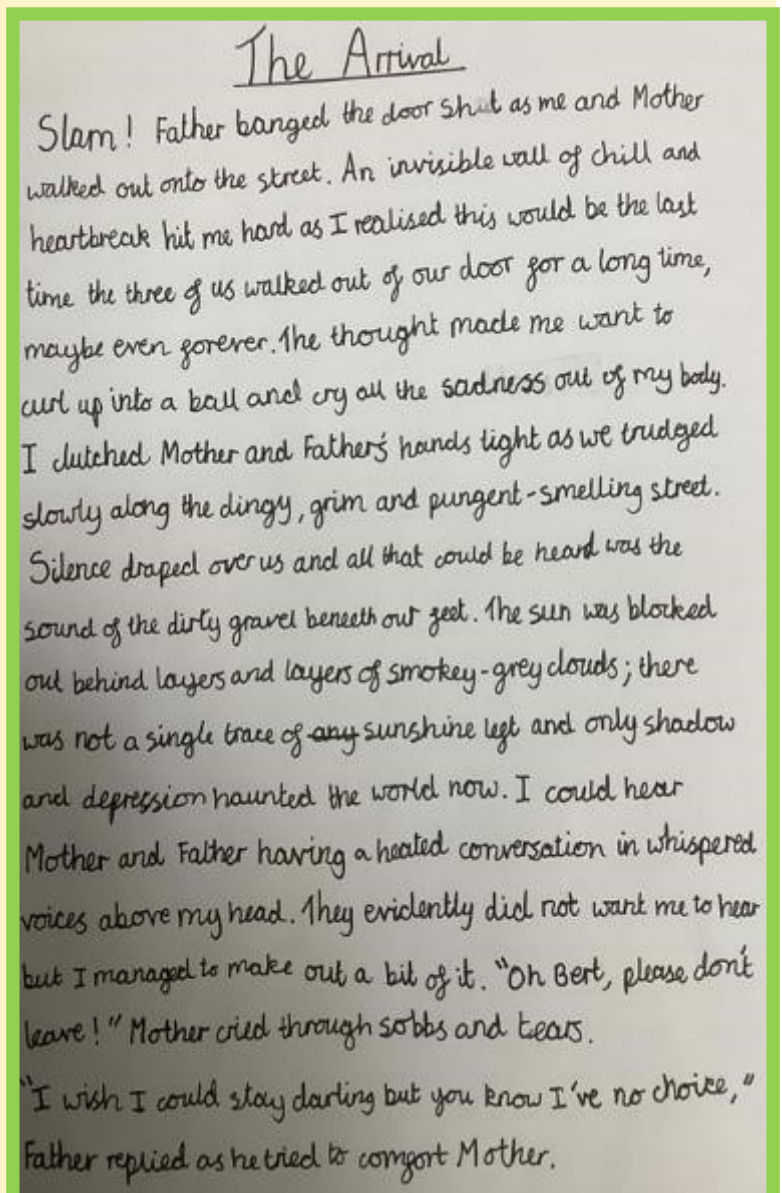 The Arrival
Slam! Father banged the door shut as me and Mother
walked out onto the street. An invisible wall of chill and
heartbreak hit me hard as I realised this would be the last
time the three of us walked out of our door for a long time,
maybe even forever. The thought made me want to
curl up into a ball and cry all the sadness out of my body.
I clutched Mother and Father's hands tight as we trudged
slowly along the dingy, grim and pungent-smelling street.
Silence draped over us and all that could be heard was the
sound of the dirty gravel beneath our feet. The sun was blocked
out behind layers and layers of smokey-grey clouds; there
was not a single trace of any sunshine left and only shadow
and depression haunted the world now. I could hear
Mother and Father having a heated conversation in whispered
voices above my head. They evidently did not want me to hear
but I managed to make out a bit of it. "Oh Bert, please don't
leave!" Mother cried through sobbs and tears.
"I wish I could stay darling but you know I've no choice,"
Father replied as he tried to comfort Mother.